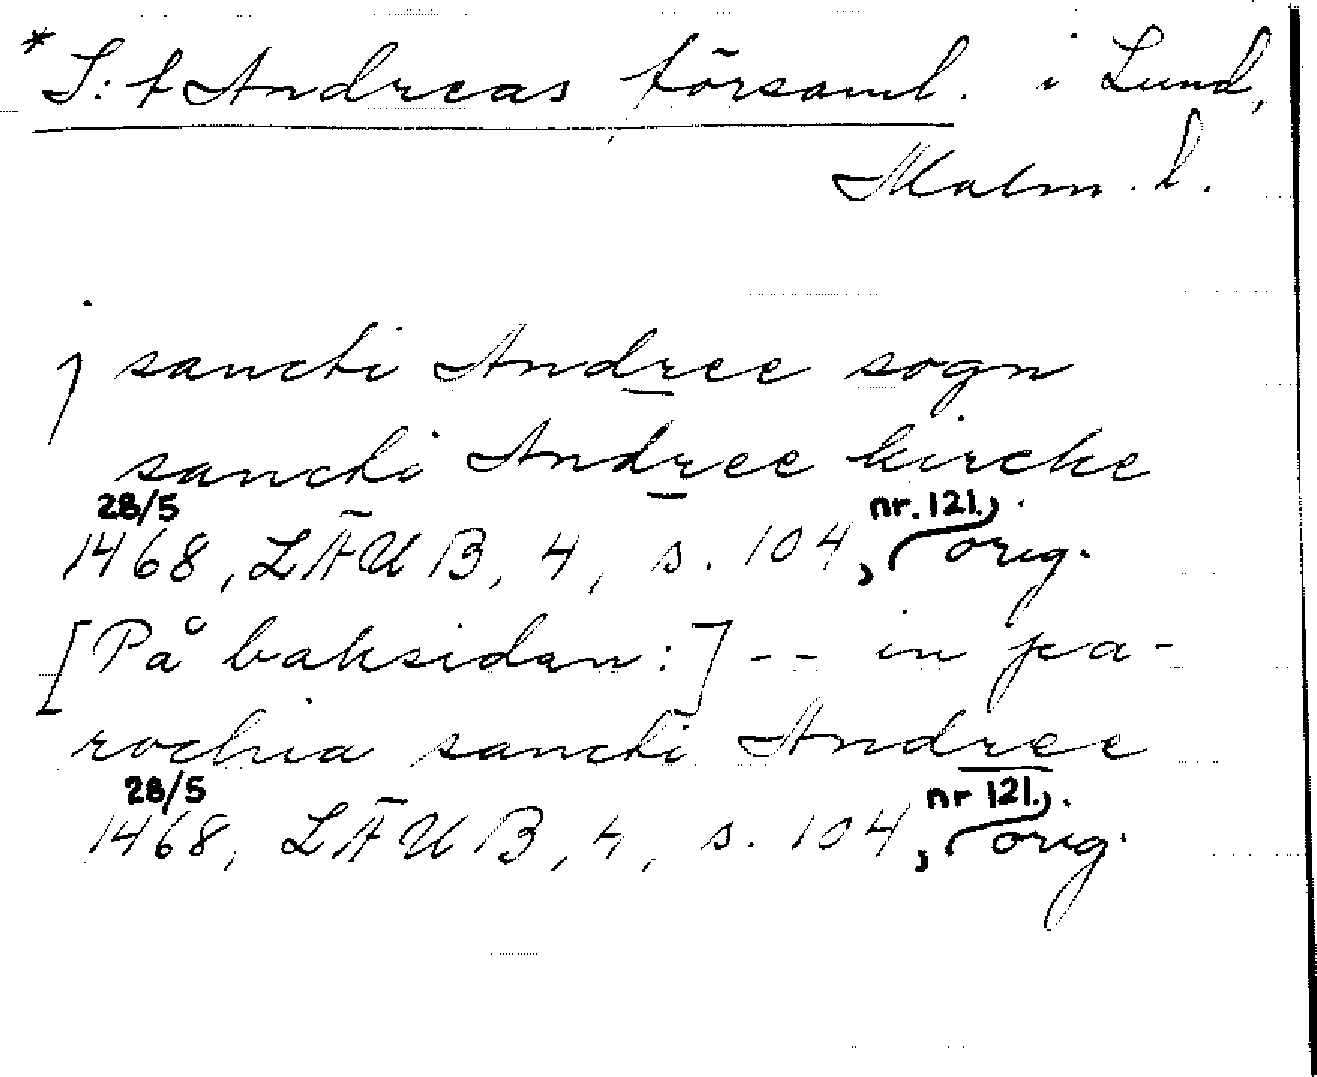 *S:t Andreas församl. i Lund,
Malm. l.
j sancti Andree sogn
sancti Andree kirche
28/5 nr. 121.
1468, LÄUB, 4, s. 104, orig.
[På baksidan:] -- in pa-
rochia sancti Andree
28/5 nr 121.
1468, LÄUB, 4, s. 104, orig.